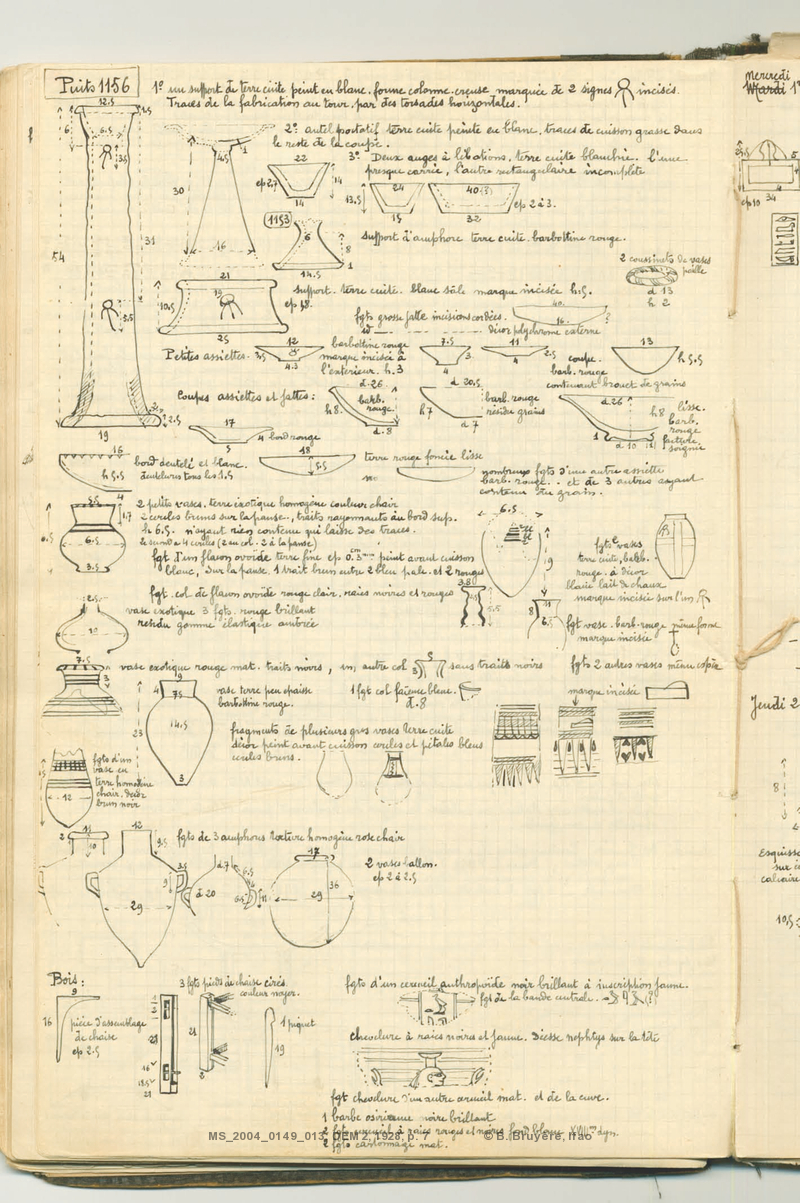 Puits 1156
1° un support de terre cuite peint en blanc. forme colonne creuse marquée de 2 signes incisés.
Traces de la fabrication au tour, par des torsades horizontales.
12.5
6
6.5
3.5
54
31
3.5
19
2.5
2° autel portatif terre cuite peinte en blanc. traces de cuisson grasse dans
le reste de la coupe.
4.5
1
30
16
3° Deux auges à libations, terre cuite blanchie. l'une
presque carrée, l'autre rectangulaire incomplète
22
ep 2,7
14
14
13.5
24
15
40 (?)
32
ep 2 à 3.
1153
6
8
14.5
1
support d'amphore terre cuite. barbottine rouge.
2 coussinets de vases
paille
d 13
h 2
21
10.5
19
25
support. terre cuite. blanc sale marque incisée h: 5.
fgts grosse jatte incisions cordées.
40
16
id — décor polychrome externe
Petites assiettes.
12
3.5
4.3
barbottine rouge
marque incisée à
l'extérieur. h. 3
7.5
3
4
11
2.5
4
coupe.
barb. rouge
contenant brouet de grains
13
h 5.5
Coupes assiettes et jattes:
17
5
4 bord rouge
d. 26
h 8.
barb.
rouge.
d. 8
d 20.5
h 7
d 7
barb. rouge
résidu grains
d 26
1
d 10
h 8
lisse.
barb.
rouge
facture
soignée
16
h 5.5
bord dentelé et blanc.
dentelures tous les 1.5
18
5.5
terre rouge foncée lisse
nombreux fgts d'une autre assiette
barb. rouge. - et de 3 autres ayant
contenu du grain.
5.5
4
1.7
6.5
6.5
3.5
2 petits vases. terre exotique homogène couleur chair
2 cercles bruns sur la panse., traits rayonnants au bord sup.
h 6.5. n'ayant rien contenu qui laisse des traces.
le second a 4 cercles (2 au col - 2 à la panse)
fgt d'un flacon ovoïde terre fine ep 0.3 peint avant cuisson
blanc, sur la panse. 1 trait brun entre 2 bleu pale. et 2 rouges
6.5
9
fgts vases
terre cuite, barb.
rouge. à décor
blanc lait de chaux
marque incisée sur l'un
2.5
10
fgt. col de flacon ovoïde rouge clair, raies noires et rouges
3.8
5.5
vase exotique 3 fgts. rouge brillant
résidu gomme élastique ambrée
11
8
6.5
fgt vase. barb. rouge même forme
marque incisée
7.5
3
vase exotique rouge mat. traits noirs, un autre col
5
3
sans traits noirs
fgts 2 autres vases même copie
9
4
7.5
14.5
23
3
vase terre peu épaisse
barbottine rouge.
1 fgt col faïence bleue.
d. 8
marque incisée
fragments de plusieurs gros vases terre cuite
décor peint avant cuisson cercles et pétales bleus
cercles bruns.
15
12
fgts d'un
vase en
terre homogène
chair. décor
brun noir
11
2
10
12
9.5
29
3.5
9
fgts de 3 amphores texture homogène rose chair
d 7
d 20
6.5
6.5
11
17
36
29
2 vases ballon.
ep 2 à 2.5
Bois:
9
16
pièce d'assemblage
de chaise
ep 2.5
3 fgts pieds de chaise cirés.
couleur noyer.
21
21
2
1 piquet
19
fgts d'un cercueil anthropoïde noir brillant à inscription jaune.
fgt de la bande centrale.
chevelure à raies noires et jaune. déesse nephtys sur la tête
fgt chevelure d'un autre cercueil mat. et de la cuve.
1 barbe osirienne noire brillant
2 fgt cercueil à raies rouges et noires fond blanc XVIII dyn.
2 fgts cartonnage mat.
MS_2004_0149_013, DEM 2, 1928, p. 7 © B. Bruyère, Ifao
Mercredi
Mardi 1
5
4
34
ep 10
Jeudi 2
8
Esquisse
sur
calcaire
10,5